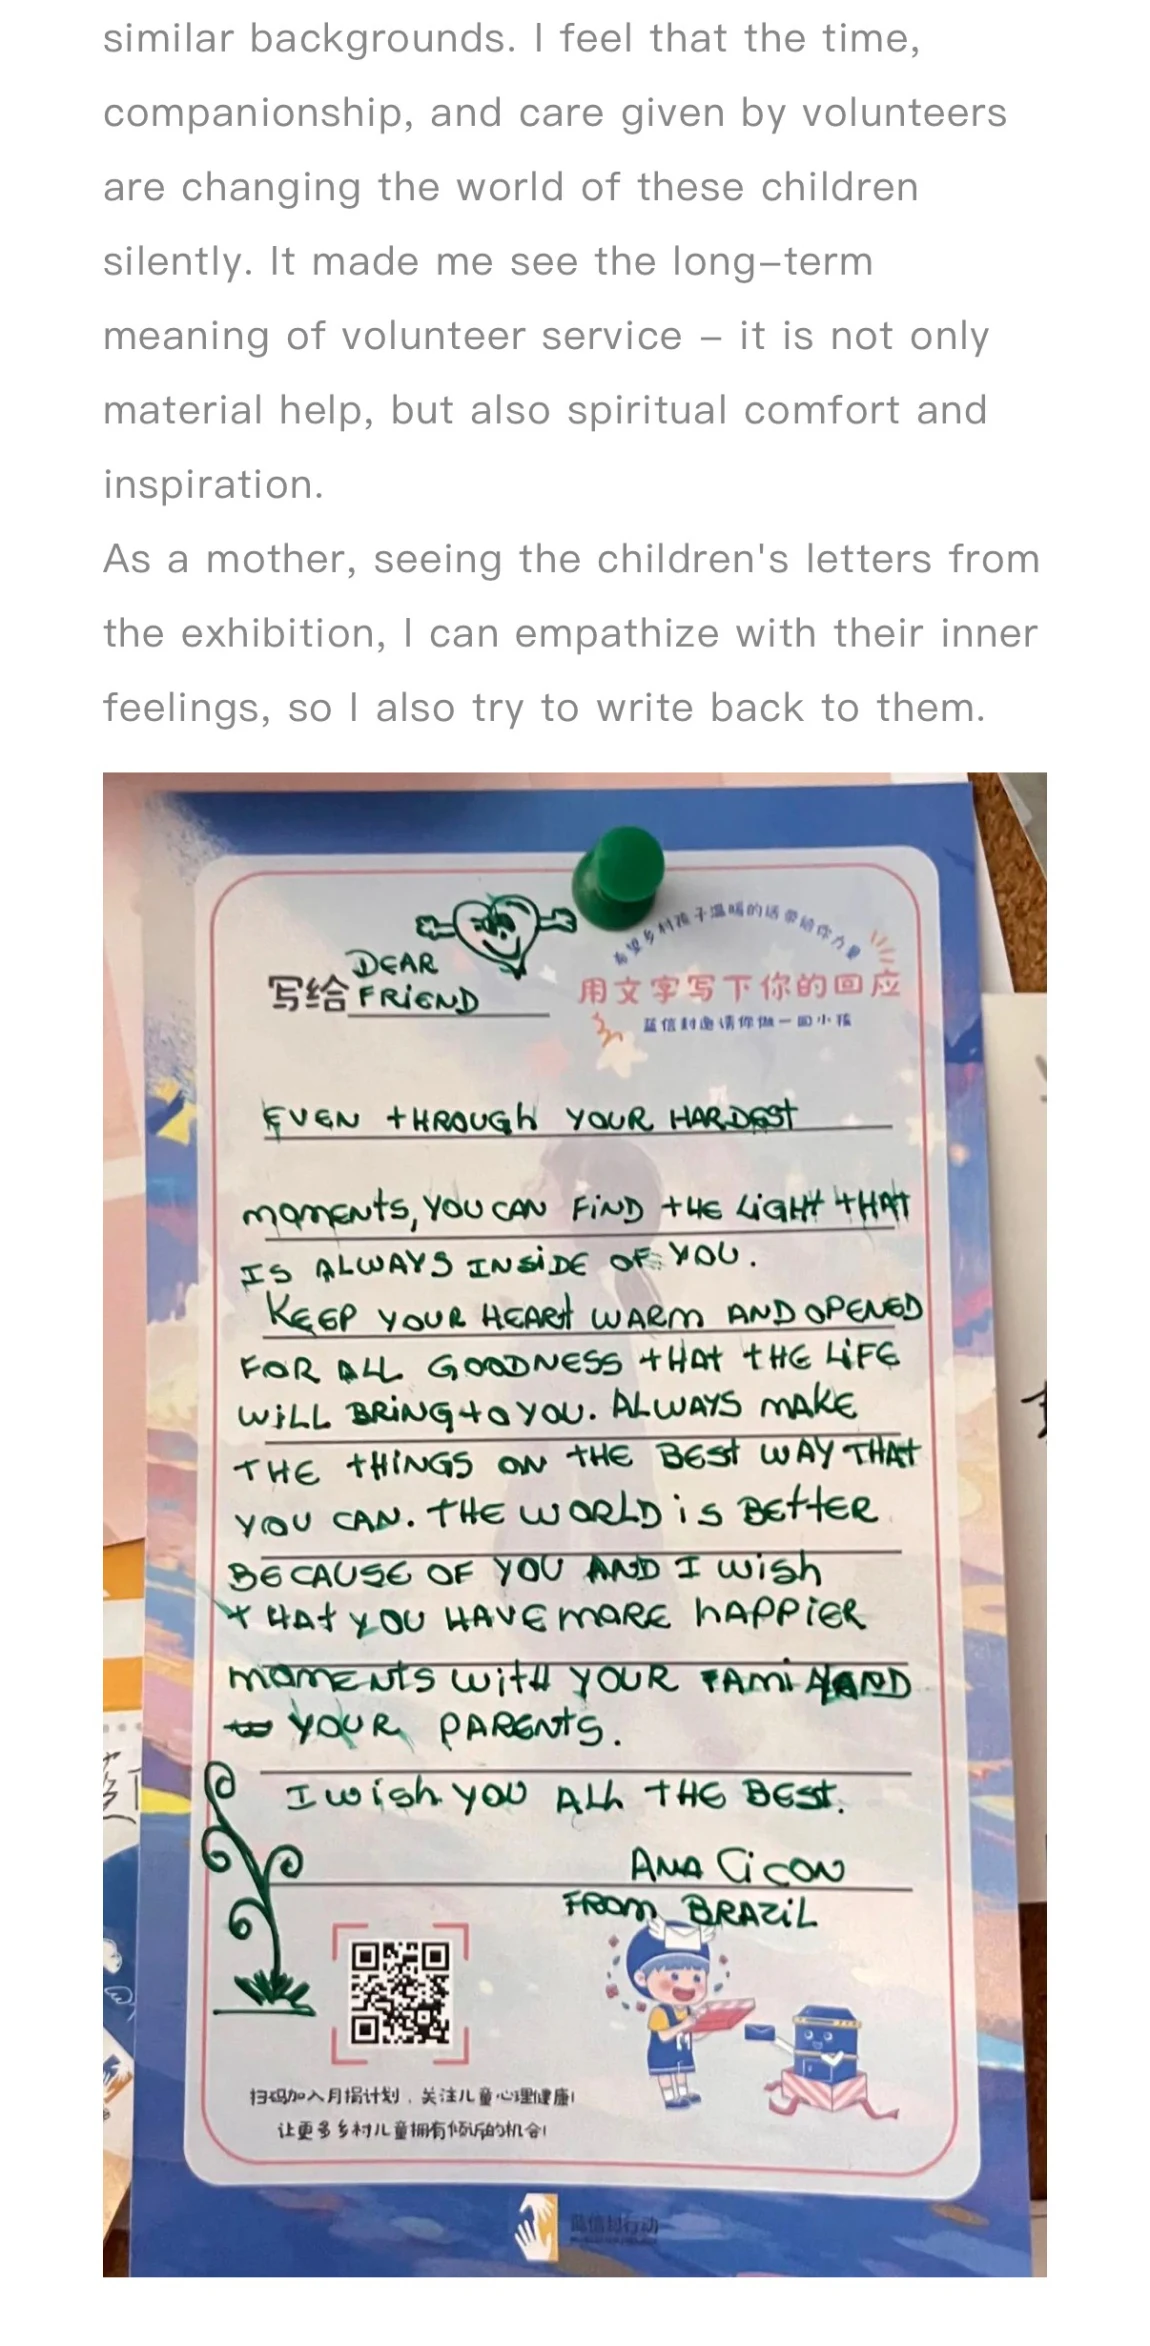 similar backgrounds. I feel that the time,
companionship, and care given by volunteers
are changing the world of these children
silently. It made me see the long–term
meaning of volunteer service – it is not only
material help, but also spiritual comfort and
inspiration.
As a mother, seeing the children's letters from
the exhibition, I can empathize with their inner
feelings, so I also try to write back to them.
希望乡村孩子温暖的话带给你力量
写给 DEAR
FRIEND
用文字写下你的回应
蓝信封邀请你做一回小孩
EVEN THROUGH YOUR HARDEST
MOMENTS, YOU CAN FIND THE LIGHT THAT
IS ALWAYS INSIDE OF YOU.
KEEP YOUR HEART WARM AND OPENED
FOR ALL GOODNESS THAT THE LIFE
WILL BRING TO YOU. ALWAYS MAKE
THE THINGS ON THE BEST WAY THAT
YOU CAN. THE WORLD IS BETTER
BECAUSE OF YOU AND I WISH
THAT YOU HAVE MORE HAPPIER
MOMENTS WITH YOUR FAMILY AND
YOUR PARENTS.
I WISH YOU ALL THE BEST.
ANA CICON
FROM BRAZIL
扫码加入月捐计划，关注儿童心理健康！
让更多乡村儿童拥有倾诉的机会！
蓝信封行动